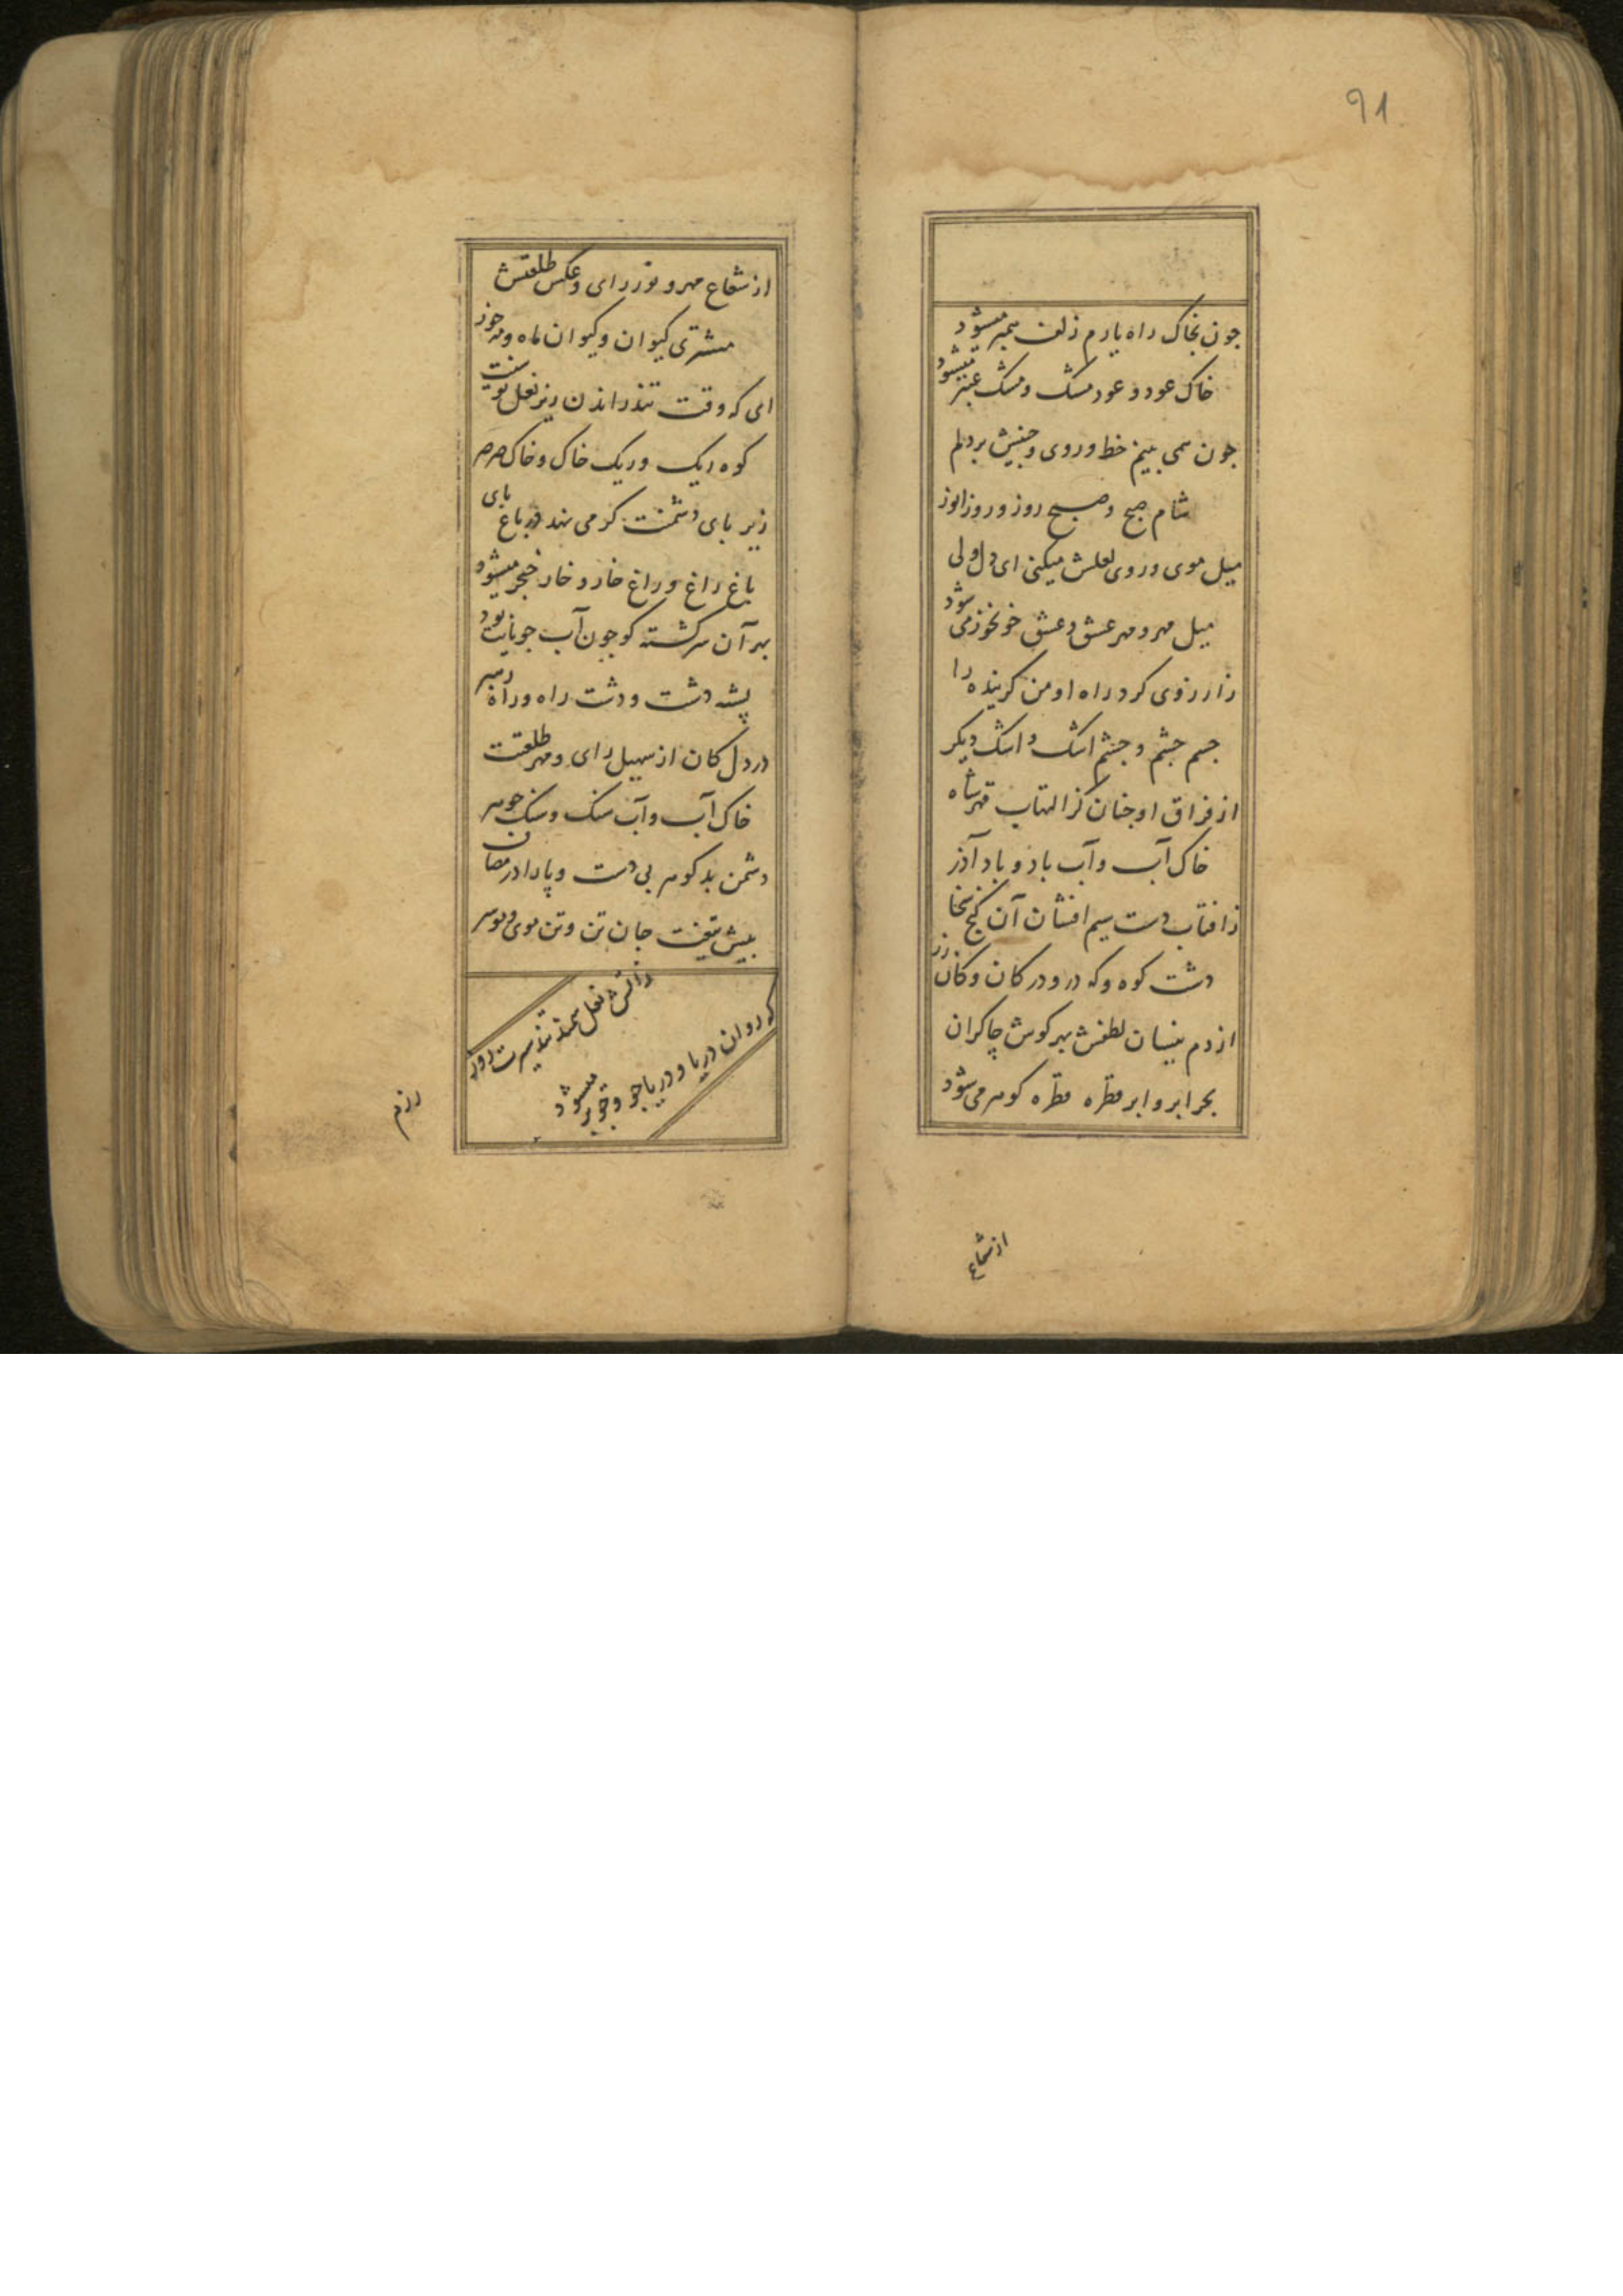 91
جون بخاک راه یارم زلف همبر میشود
خاک عود و عود مشک و مشک عنبر میشود
جون همی بینم خط و روی و جبینش بر دلم
شام صبح و صبح روز و روز انور
میل موی و روی لعلش میکنی ای دل ولی
میل مهر و مهر عشق و عشق خونخور می شود
زارزوی کرد راه او من کرینده را
جسم جشم و جشم اشک و اشک دیکر
از فراق او جنان کز التهاب قهر شاه
خاک آب و آب باد و باد آذر
زافتاب دست سیم افشان آن کنج سخا
دشت کوه و که در و در کان و کان زر
از دم نیسان لطفش بهر کوش چاکران
بحر ابر و ابر قطره قطره کوهر می شود
از شعاع
از شعاع مهر و نور رای و عکس طلعتش
مشتری کیوان و کیوان ماه و مه خور
ای که وقت تندراندن زیر نعل
کوه ریک و ریک خاک و خاک صرصر
زیر بای دشمنت کر می نهد در باغ بای
باغ راغ و راغ خار و خار خنجر میشود
بهر آن سرکشته کو جون آب جویانت بود
پشه دشت و دشت راه و راه رهبر
در دل کان از سهیل رای و مهر طلعتت
خاک آب و آب سنک و سنک جوهر
دشمن بد کوهر بی دست و پا را در مصاف
بیش تیغت جان تن و تن موی و موسر
زاتش نعل سمند تندسیرت روز
که روان دریا و دریا جو و جو بر میشود
رزم